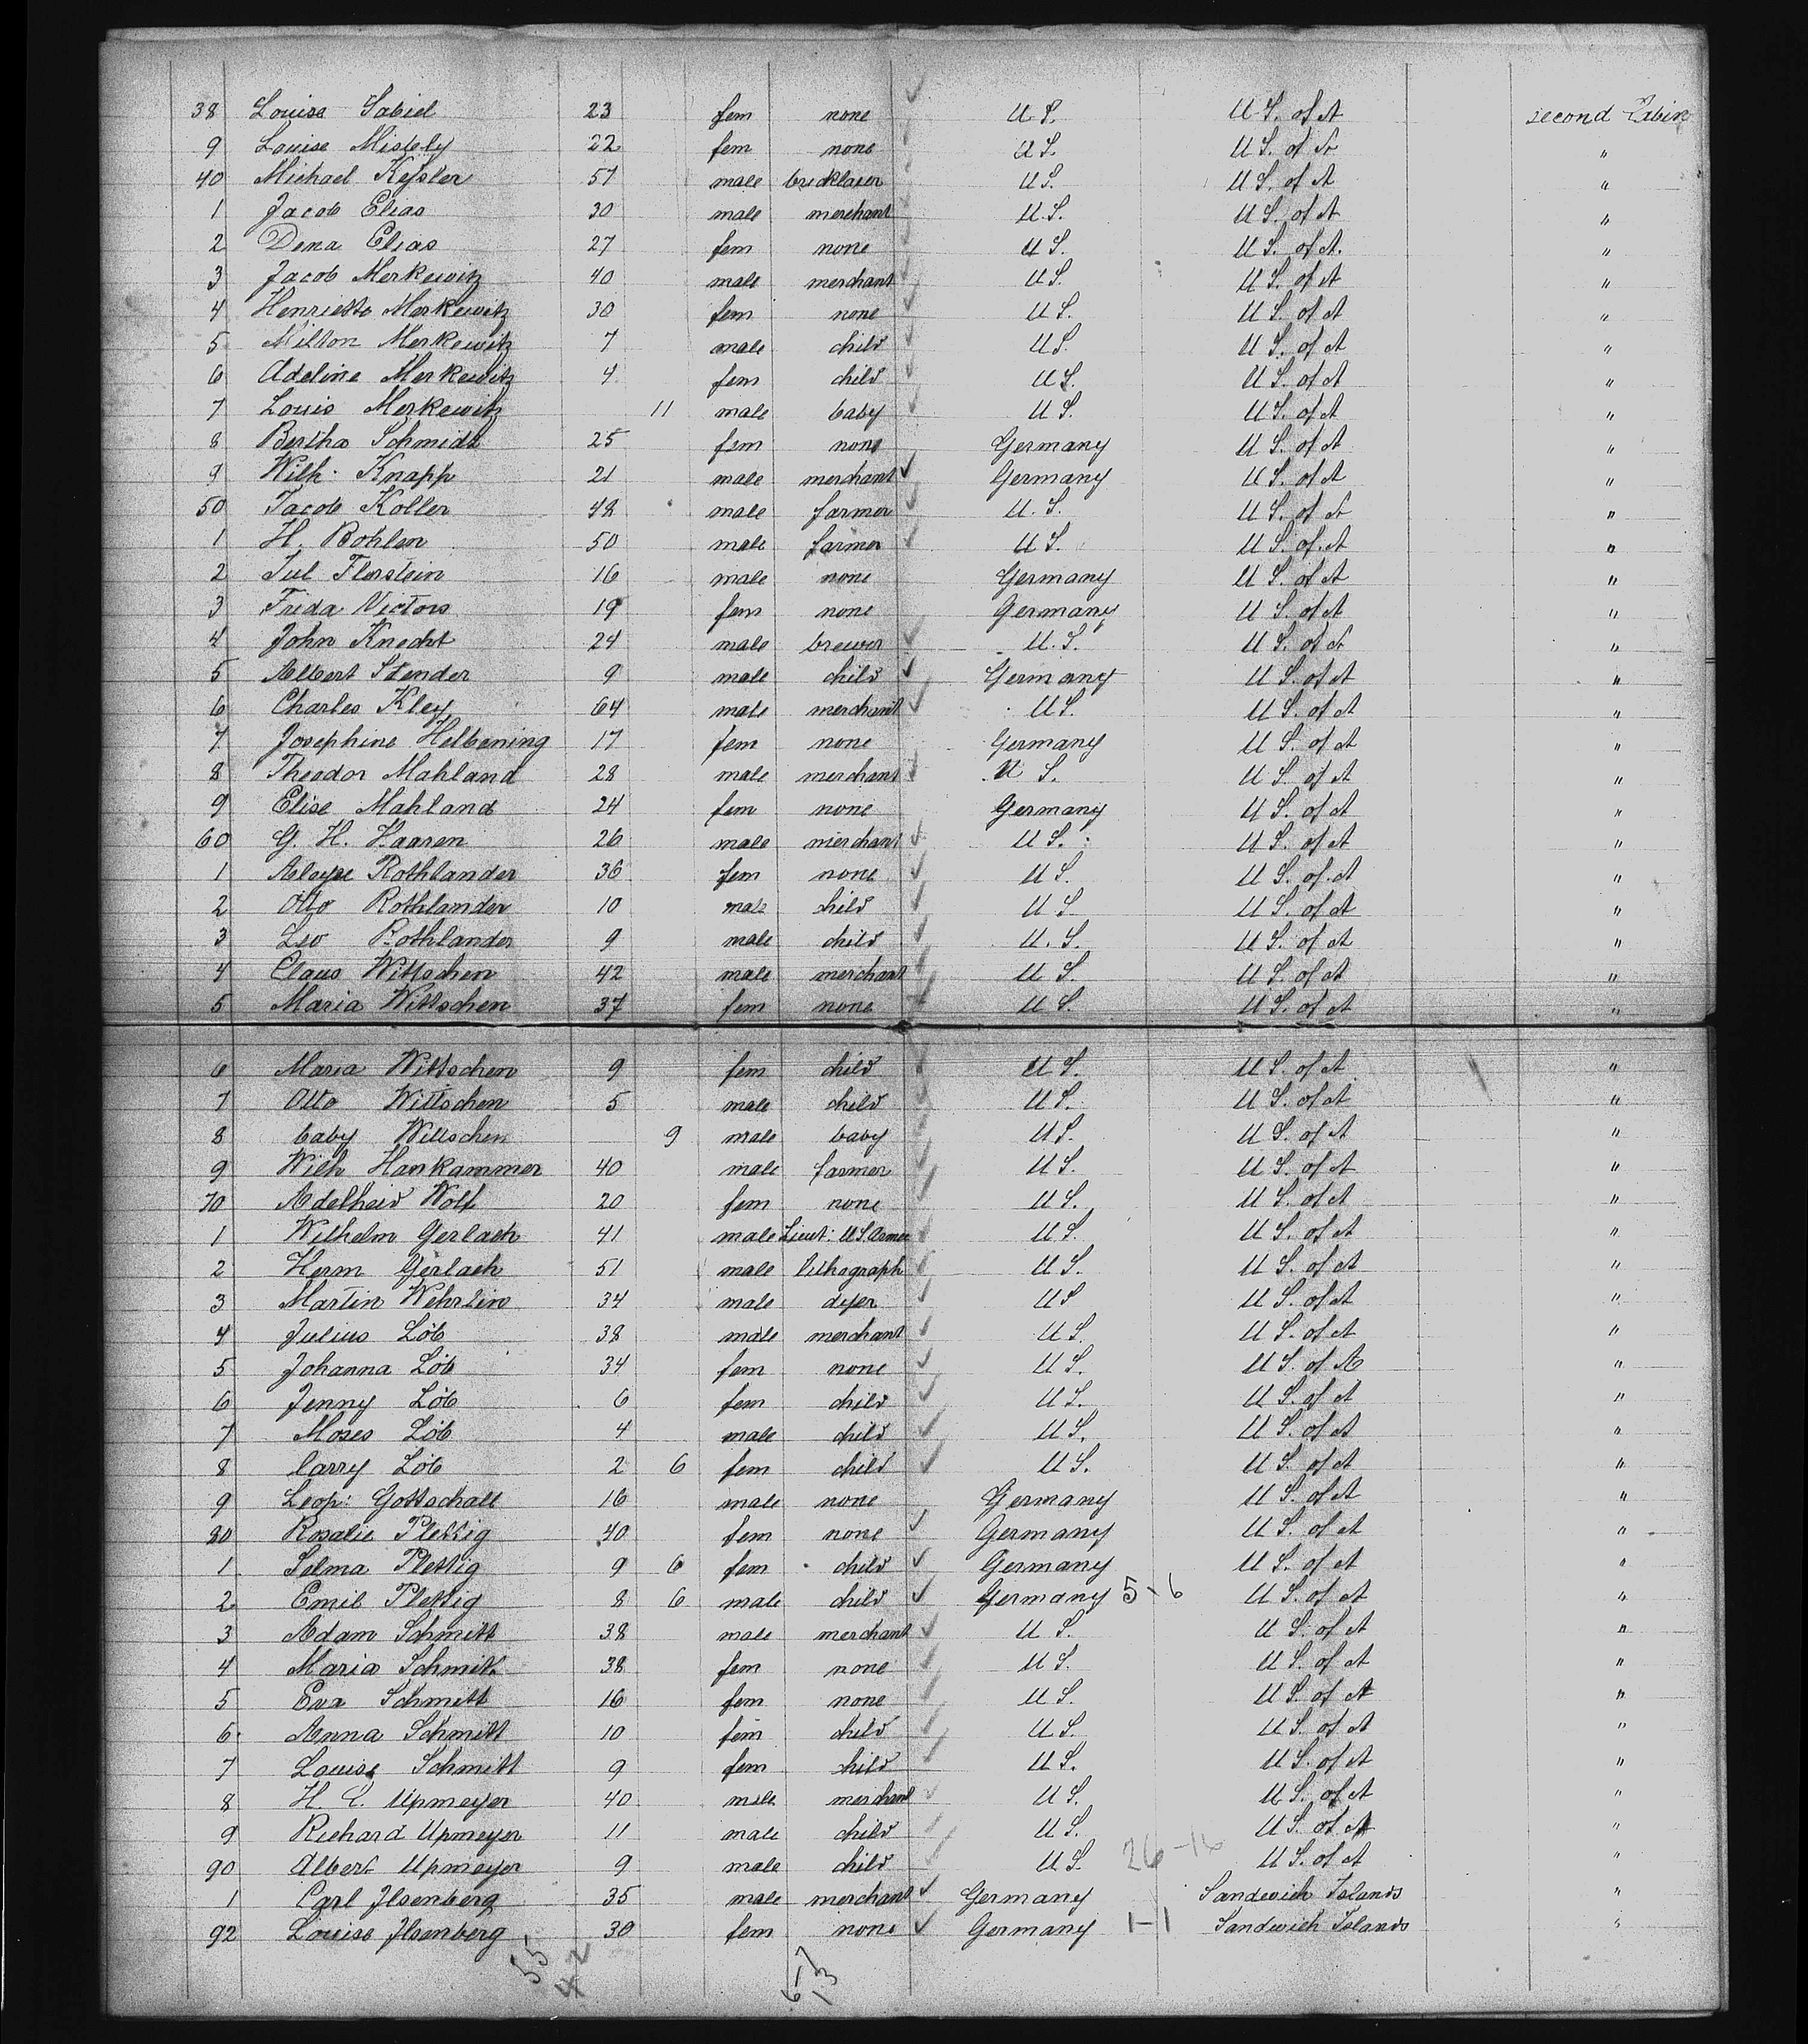 38 Louise Sabiel 23 fem none U S. U S. of A second Cabin
9 Louise Mistely 22 fem none U S. U S. of A "
40 Michael Kessler 51 male bricklaier U S. U S. of A "
1 Jacob Elias 30 male merchant U. S. U S. of A "
2 Dena Elias 27 fem none U S. U S. of A. "
3 Jacob Merkewitz 40 male merchant U S. U S. of A "
4 Henriette Merkewitz 30 fem none U S. U S. of A "
5 Milton Merkewitz 7 male child U S. U S. of A "
6 Adeline Merkewitz 4 fem child U S. U S. of A "
7 Louis Merkewitz 11 male baby U S. U S. of A "
8 Bertha Schmidt 25 fem none Germany U S. of A "
9 Wilh. Knapp 21 male merchant Germany U S. of A "
50 Jacob Koller 48 male farmer U. S. U S. of A "
1 H. Bohlen 50 male farmer U S. U S. of A "
2 Jul Florstein 16 male none Germany U S. of A "
3 Frida Victors 19 fem none Germany U S. of A "
4 John Knecht 24 male brewer U. S. U S. of A "
5 Albert Stender 9 male child Germany U S. of A "
6 Charles Kley 64 male merchant U S. U S. of A "
7 Josephine Helbening 17 fem none Germany U S. of A "
8 Theodor Mahland 28 male merchant U S. U S. of A "
9 Elise Mahland 24 fem none Germany U S. of A "
60 G. H. Haaren 26 male merchant U S. U S. of A "
1 Aloyse Rothlander 36 fem none U S. U S. of A "
2 Otto Rothlander 10 male child U S. U S. of A "
3 Leo Rothlander 9 male child U. S. U S. of A "
4 Claus Wittschen 42 male merchant U S. U S. of A "
5 Maria Wittschen 37 fem none U S. U S. of A "
6 Maria Wittschen 9 fem child U S. U S. of A "
7 Otto Wittschen 5 male child U S. U S. of A "
8 baby Wittschen 9 male baby U S. U S. of A "
9 Wilh Hankammer 40 male farmer U S. U S. of A "
70 Adelheid Wolf 20 fem none U S. U S. of A "
1 Wilhelm Gerlach 41 male Lieut: U S. Armee U S. U S. of A "
2 Herm Gerlach 51 male lithograph U S. U S. of A "
3 Martin Wehrlin 34 male dyer U S U S. of A "
4 Julius Löb 38 male merchant U S. U S. of A "
5 Johanna Löb 34 fem none U S. U S. of A "
6 Jenny Löb 6 fem child U S. U S. of A "
7 Moses Löb 4 male child U S. U S. of A "
8 Carry Löb 2 6 fem child U S. U S. of A "
9 Leop: Gottschall 16 male none Germany U S. of A "
80 Rosalie Plettig 40 fem none Germany U S. of A "
1 Selma Plettig 9 6 fem child Germany U S. of A "
2 Emil Plettig 8 6 male child Germany 5-6 U S. of A "
3 Adam Schmitt 38 male merchant U S. U S. of A "
4 Maria Schmitt 38 fem none U S. U S. of A "
5 Eva Schmitt 16 fem none U S. U S. of A "
6 Anna Schmitt 10 fem child U S. U S. of A "
7 Louise Schmitt 9 fem child U S. U S. of A "
8 H. C. Upmeyer 40 male merchant U S. U S. of A "
9 Richard Upmeyer 11 male child U S. U S. of A "
90 Albert Upmeyer 9 male child U S. 26-16 U S. of A "
1 Carl Isenberg 35 male merchant Germany Sandwich Islands "
92 Louise Isenberg 30 fem none Germany 1-1 Sandwich Islands "
55
42
13